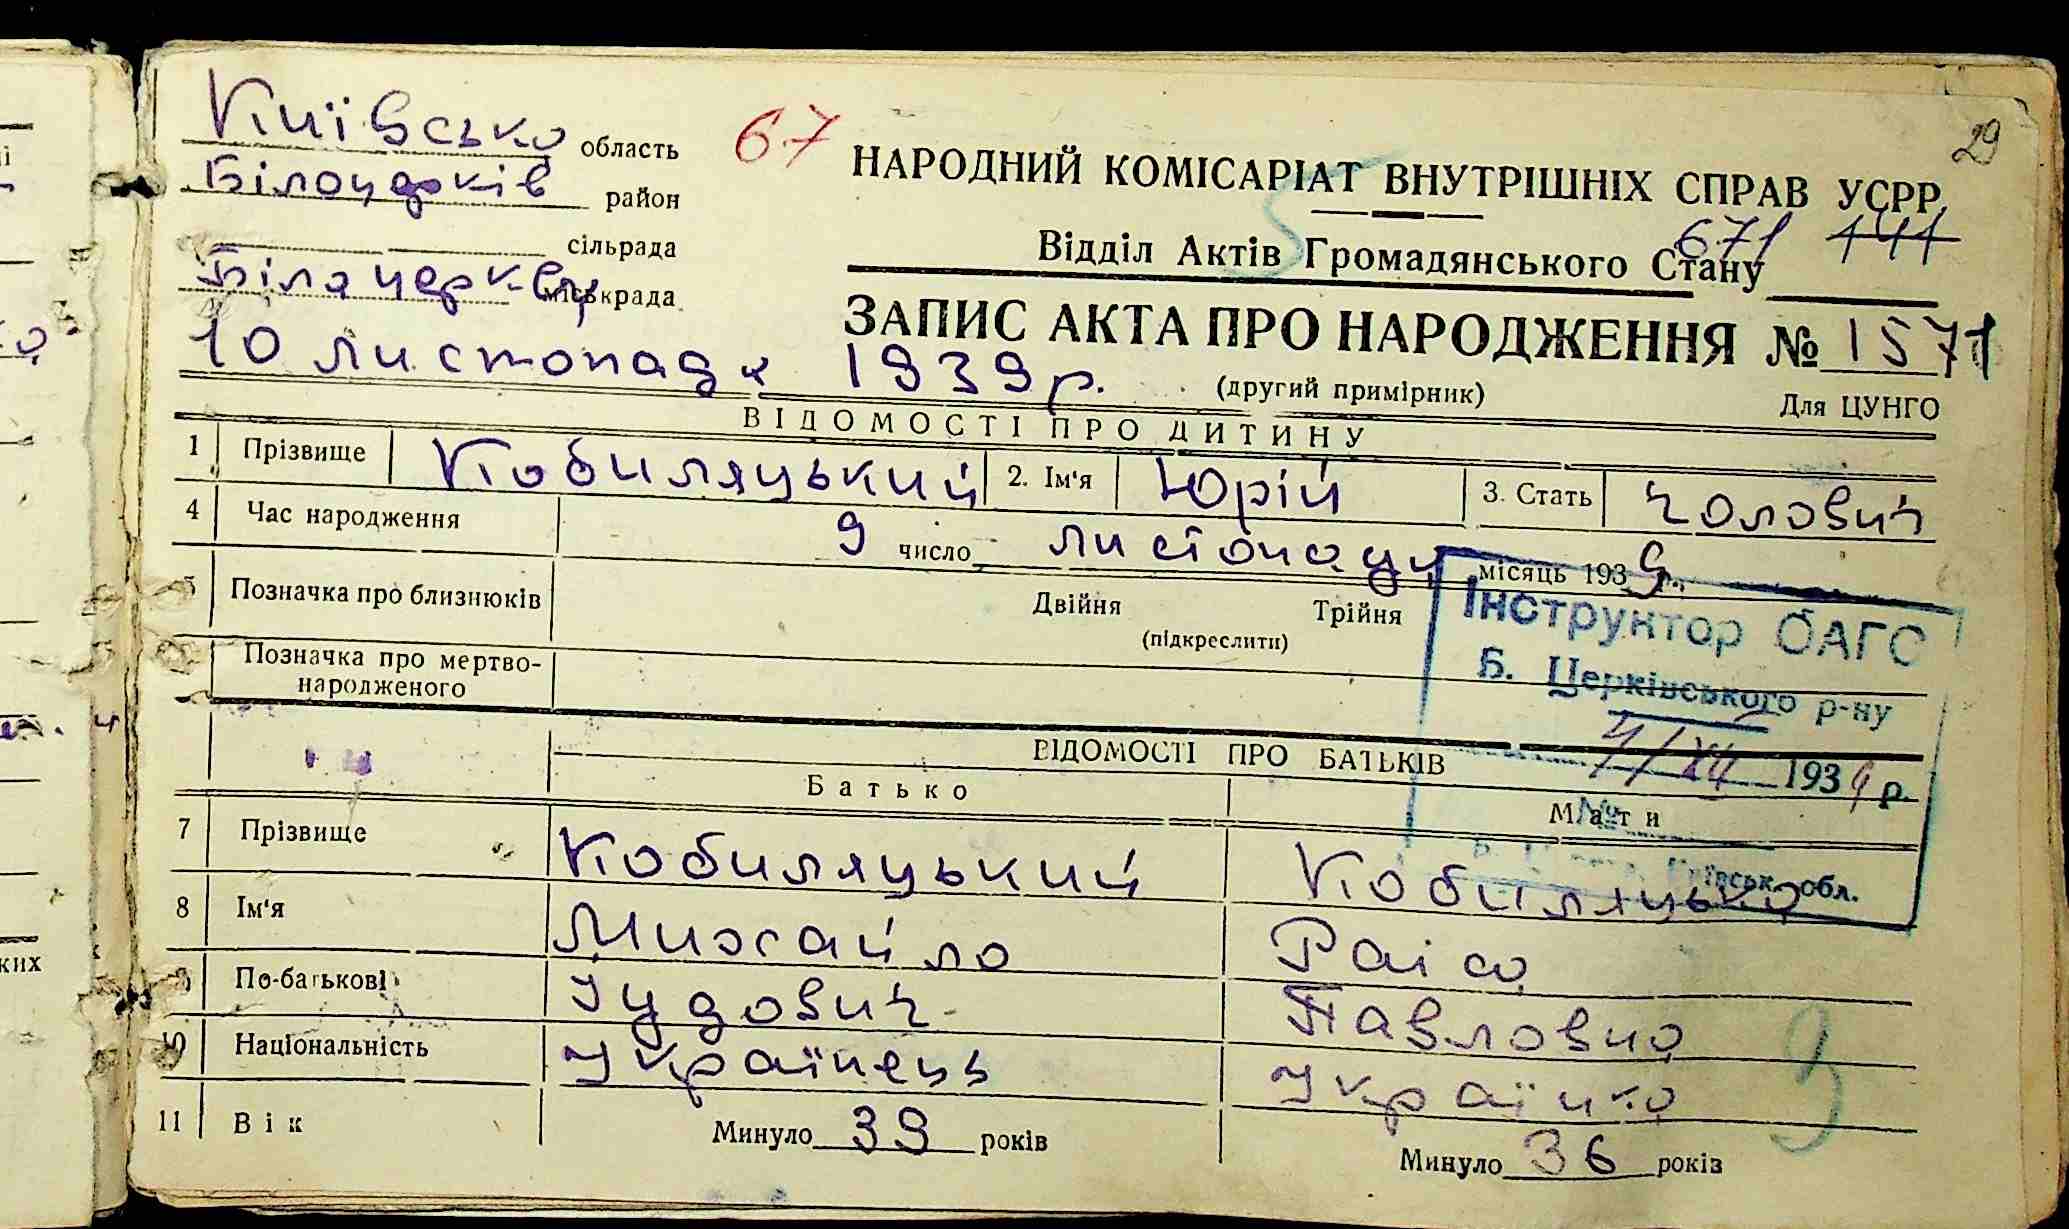 Київсько область
67
29
НАРОДНИЙ КОМІСАРІАТ ВНУТРІШНІХ СПРАВ УСРР.
Білоцерків район
сільрада
Відділ Актів Громадянського Стану
671 141
Біла церква міськрада
ЗАПИС АКТА ПРО НАРОДЖЕННЯ № 1571
10 листопада 1939 р.
(другий примірник)
Для ЦУНГО
ВІДОМОСТІ ПРО ДИТИНУ
1 Прізвище Кобиляцький 2. Ім'я Юрій 3. Стать Чолович
4 Час народження 9 число листопаду місяць 1939 р.
5 Позначка про близнюків Двійня Трійня
(підкреслити)
Інструктор ОАГС
Б. Церківського р-ну
6 Позначка про мертво-
народженого
1939 р.
ВІДОМОСТІ ПРО БАТЬКІВ
Батько Мати
обл.
7 Прізвище Кобиляцький Кобиляцька
8 Ім'я Михайло Раїса
9 По-батькові Іудович Павловна
10 Національність Українець Українка
9
11 Вік Минуло 39 років Минуло 36 років
ких